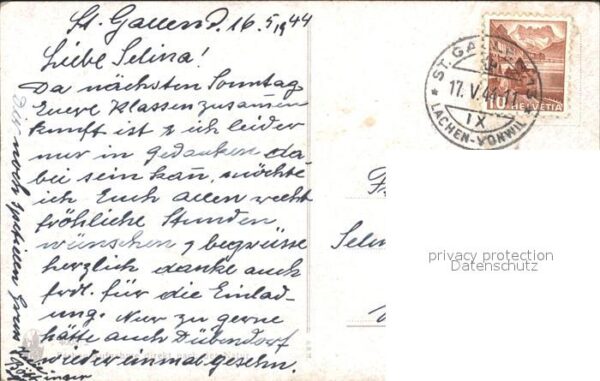 St. Gallen d. 16.5.1944
Liebe Selina!
Da nächsten Sonntag
Euere Klassenzusamen
kunft ist & ich leider
nur in gedanken da-
bei sein kan, möchte
ich Euch allen recht
fröhliche Stunden
wünschen & begrüsse
herzlich danke auch
frdl. für die Einlad-
ung. Nur zu gerne
hätte auch Dübendorf
wieder einmal gesehn.
Dir noch speziellen Gruss
ST. GALLEN
17. V. 44.11
IX
LACHEN-VONWIL
10 HELVETIA
Selin
privacy protection
Datenschutz